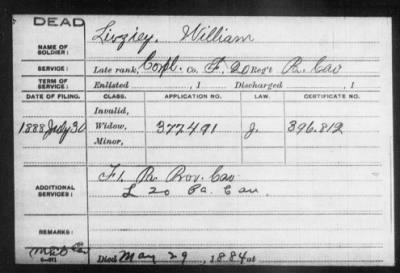 DEAD
NAME OF SOLDIER: Livziey, William
SERVICE: Late rank, Corpl. Co. F, 20 Reg't Pa. Cav
TERM OF SERVICE: Enlisted , 1 Discharged , 1
DATE OF FILING. CLASS. APPLICATION NO. LAW. CERTIFICATE NO.
Invalid,
1888 July 30 Widow, 377491 J. 396.812
Minor,
ADDITIONAL SERVICES: F 1. Pa Prov. Cav
L 20 Pa. Cav.
REMARKS:
Died May 29, 1884 at